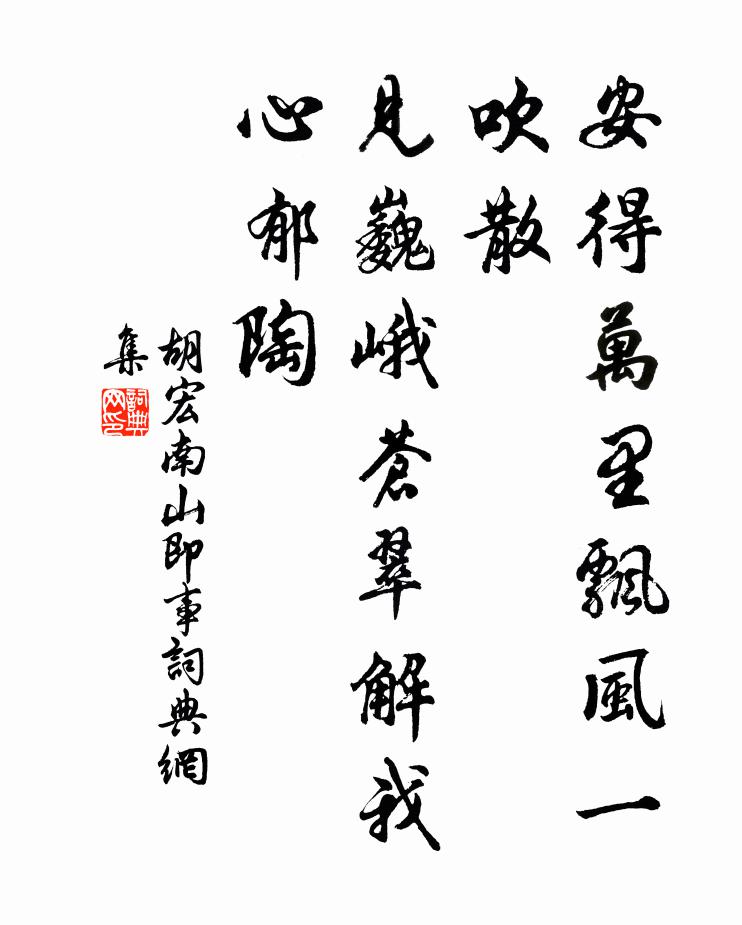 安得萬里飄風一
吹散
見巍峨蒼翠解我
心郁陶
胡宏南山即事詞典網
集
詞典
网印